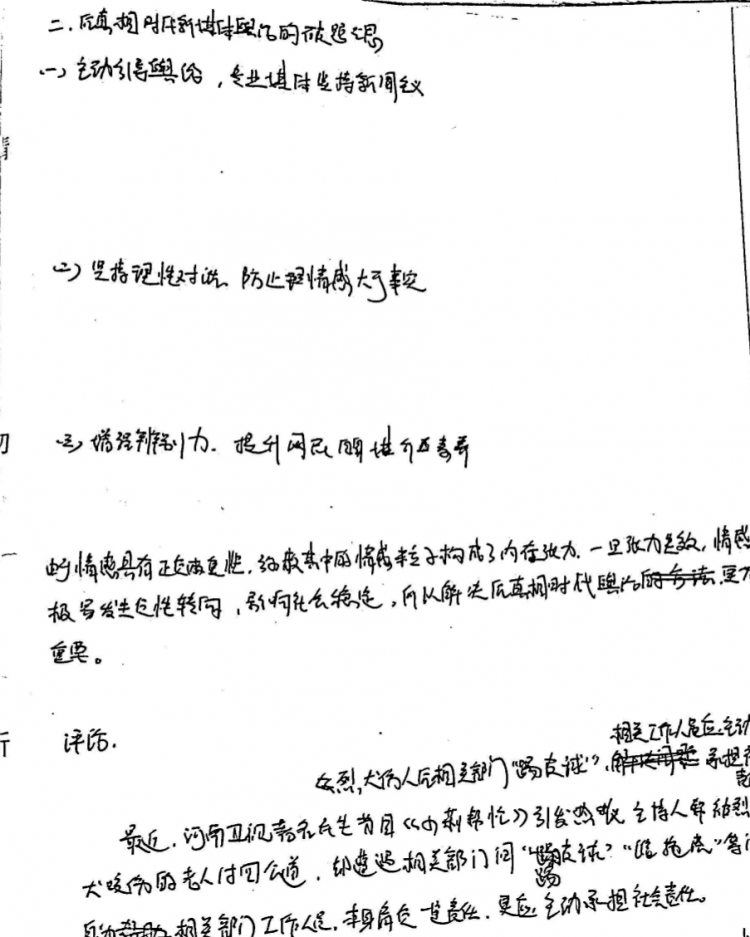 二、后真相时代新媒体舆论的破题之思
(一) 主动引导舆论，专业媒体坚持新闻主义
(二) 坚持理性对话、防止理情感大于事实
(三) 增强辨别力、提升网民 媒介素养
情感具有正负两性， 中的情感粒子构成了内在张力，一旦张力失效，情感
极易发生负性转向，影响社会稳定，所以解决后真相时代舆论的方法 更
重要。
评论.
相关工作人员应主动
恶犬伤人后相关部门“踢皮球”，解决问题 承担
最近，河南卫视 民生节目《小莉帮忙》引发热议 主持人帮 烈
犬咬伤的老人讨回公道，却遭遇相关部门间“踢皮球”“ ”等
相关部门工作人员，本身肩负一定责任，更应主动承担社会责任。